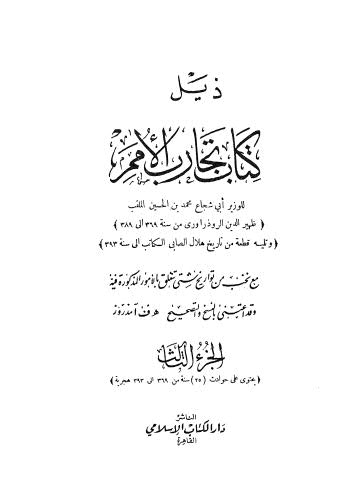 ذيل
كتاب تجارب الأمم
للوزير أبي شجاع محمد بن الحسين الملقب
﴿ ظهير الدين الروذراوري من سنة ٣٦٩ الى ٣٨٩ ﴾
﴿ وتليه قطعة من تاريخ هلال الصابي الكاتب الى سنة ٣٩٣ ﴾
مع نخب من تواريخ شتى تتعلق بالأمور المذكورة فيه
وقد اعتنى بالنسخ والتصحيح هـ ف آمدروز
الجزء الثالث
﴿ يحتوى على حوادث (٢٥) سنة من ٣٦٩ الى ٣٩٣ هجرية ﴾
الناشر
دار الكتاب الإسلامي
القاهرة